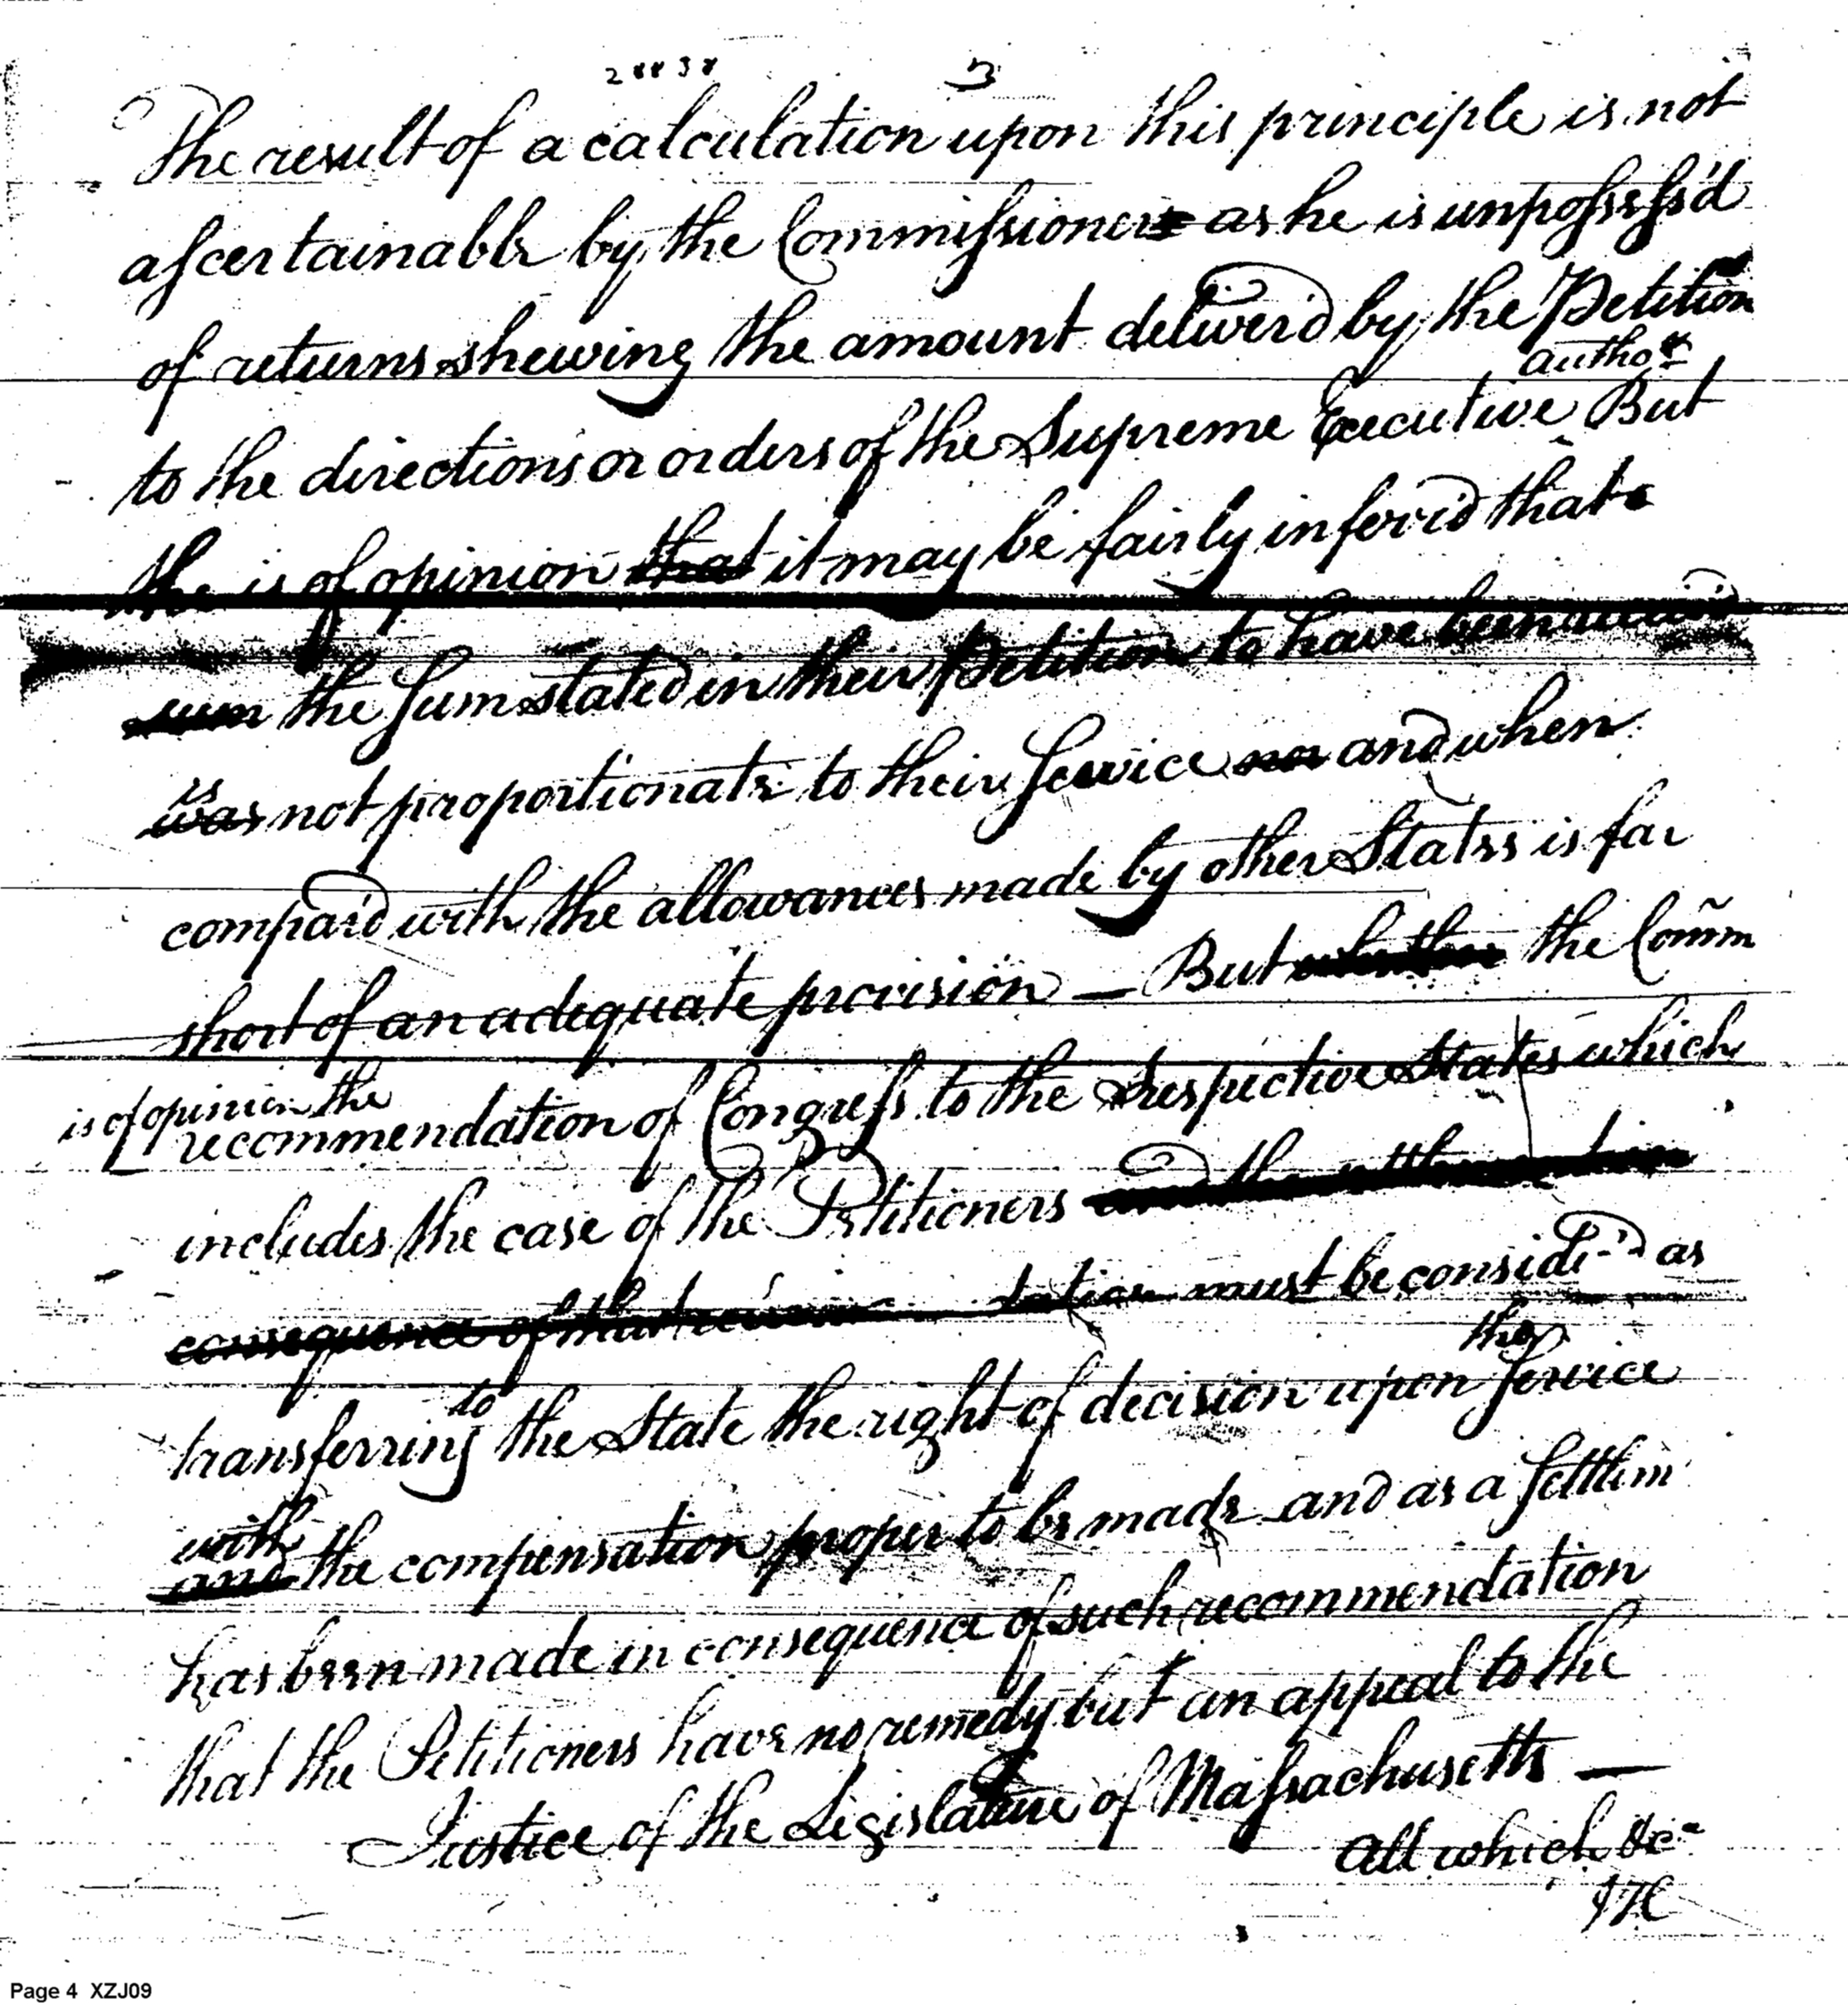 28838 3
The result of a calculation upon this principle is not
ascertainable by the Commissioners as he is unpossess'd
of returns shewing the amount deliver'd by the Petition
autho.r
to the directions or orders of the Supreme Executive But
the is of opinion that it may be fairly inferr'd that
sum the sum stated in their Petition to have been
is
was not proportionate to their Service nor and when
compar'd with the allowances made by other States is far
short of an adequate provision — But whether the Comm
is of opinion the
recommendation of Congress to the respective States which
includes the case of the Petitioners and the settlement in
consequence of that must be consider'd as
to the
transferring the State the right of decision upon Service
with
and the compensation proper to be made and as a settlem
has been made in consequence of such recommendation
that the Petitioners have no remedy but an appeal to the
Justice of the Legislature of Massachusetts —
All which &c
Page 4 XZJ09